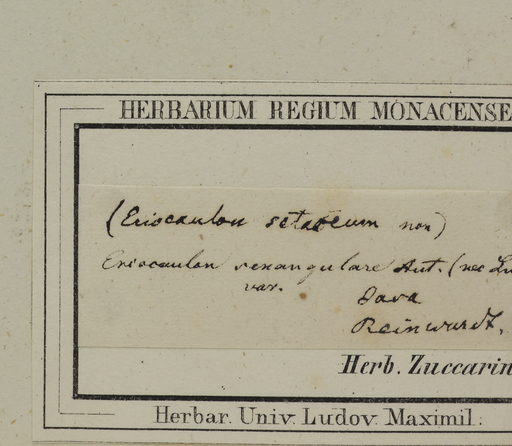 HERBARIUM REGIUM MONACENSE
(Eriocaulon setaceum non)
Eriocaulon sexangulare Aut. (nec
var.
Java
Reinwardt.
Herb. Zuccarin
Herbar. Univ. Ludov. Maximil.